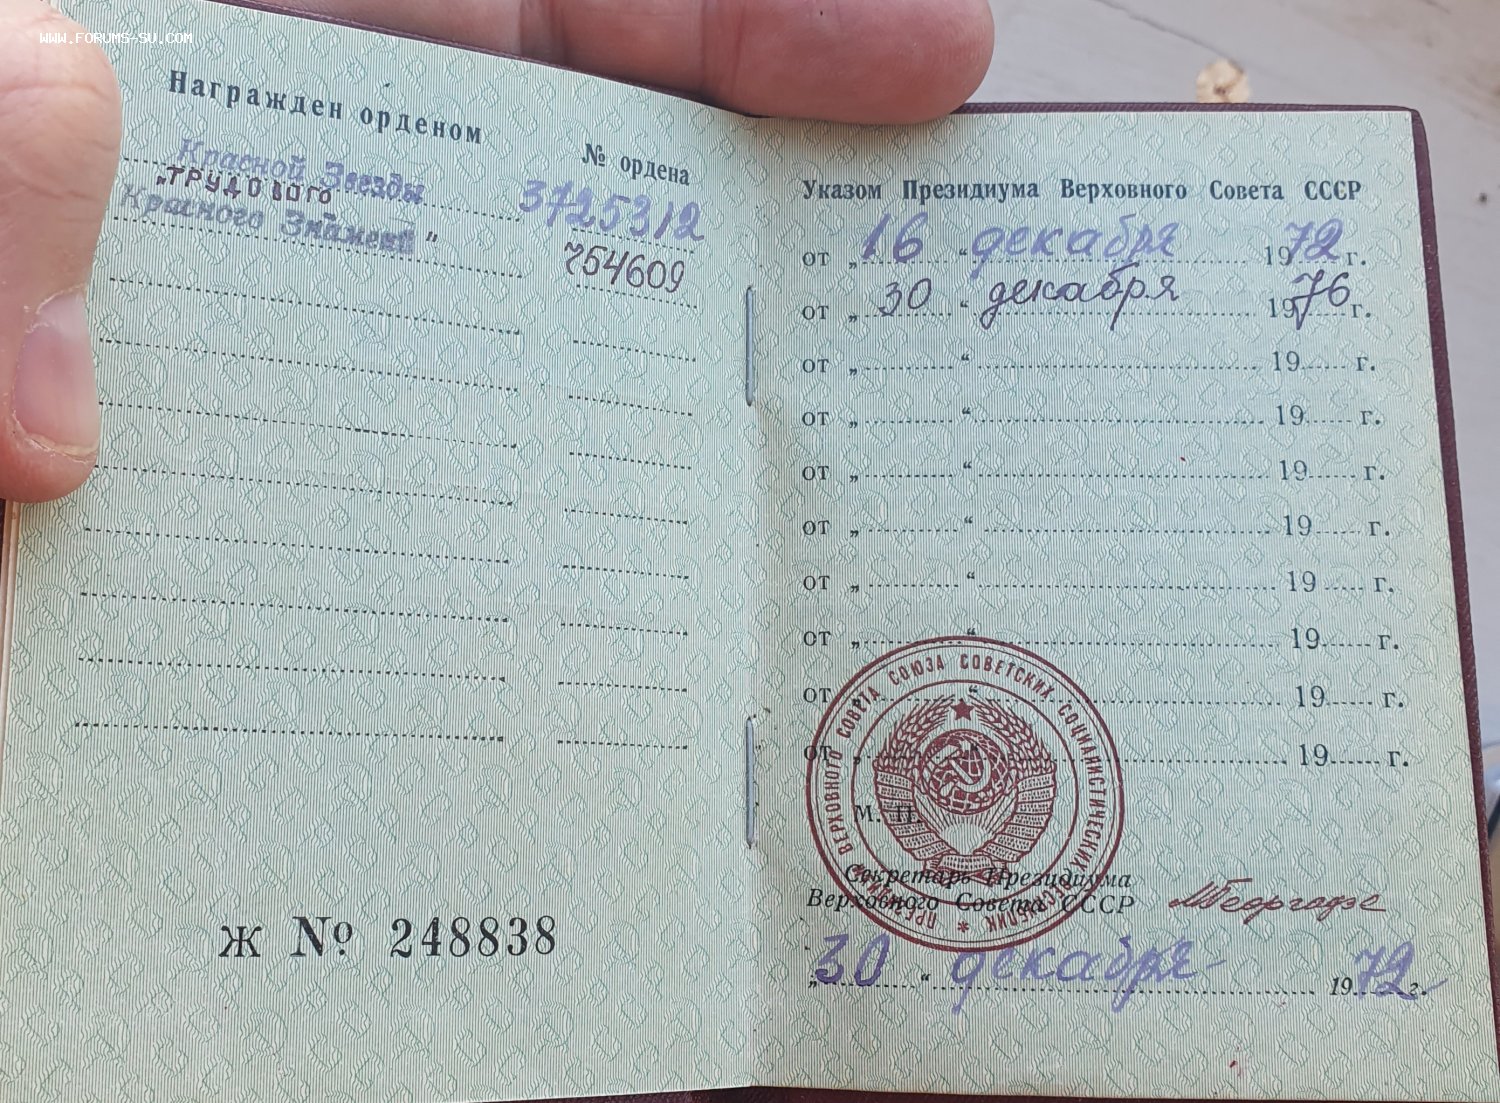 WWW.FORUMS-SU.COM
Награжден орденом
№ ордена
Красной Звезды 3725312
„ТРУДОВОГО
Красного Знамени" 754609
Ж № 248838
Указом Президиума Верховного Совета СССР
от „16“ декабря 1972 г.
от „30“ декабря 1976 г.
от „ “ 19 г.
от „ “ 19 г.
от „ “ 19 г.
от „ “ 19 г.
от „ “ 19 г.
от „ “ 19 г.
от „ “ 19 г.
от „ “ 19 г.
ПРЕЗИДИУМ ВЕРХОВНОГО СОВЕТА СОЮЗА СОВЕТСКИХ СОЦИАЛИСТИЧЕСКИХ РЕСПУБЛИК
М. П.
Секретарь Президиума
Верховного Совета СССР МГеоргадзе
„30“ декабря 1972 г.